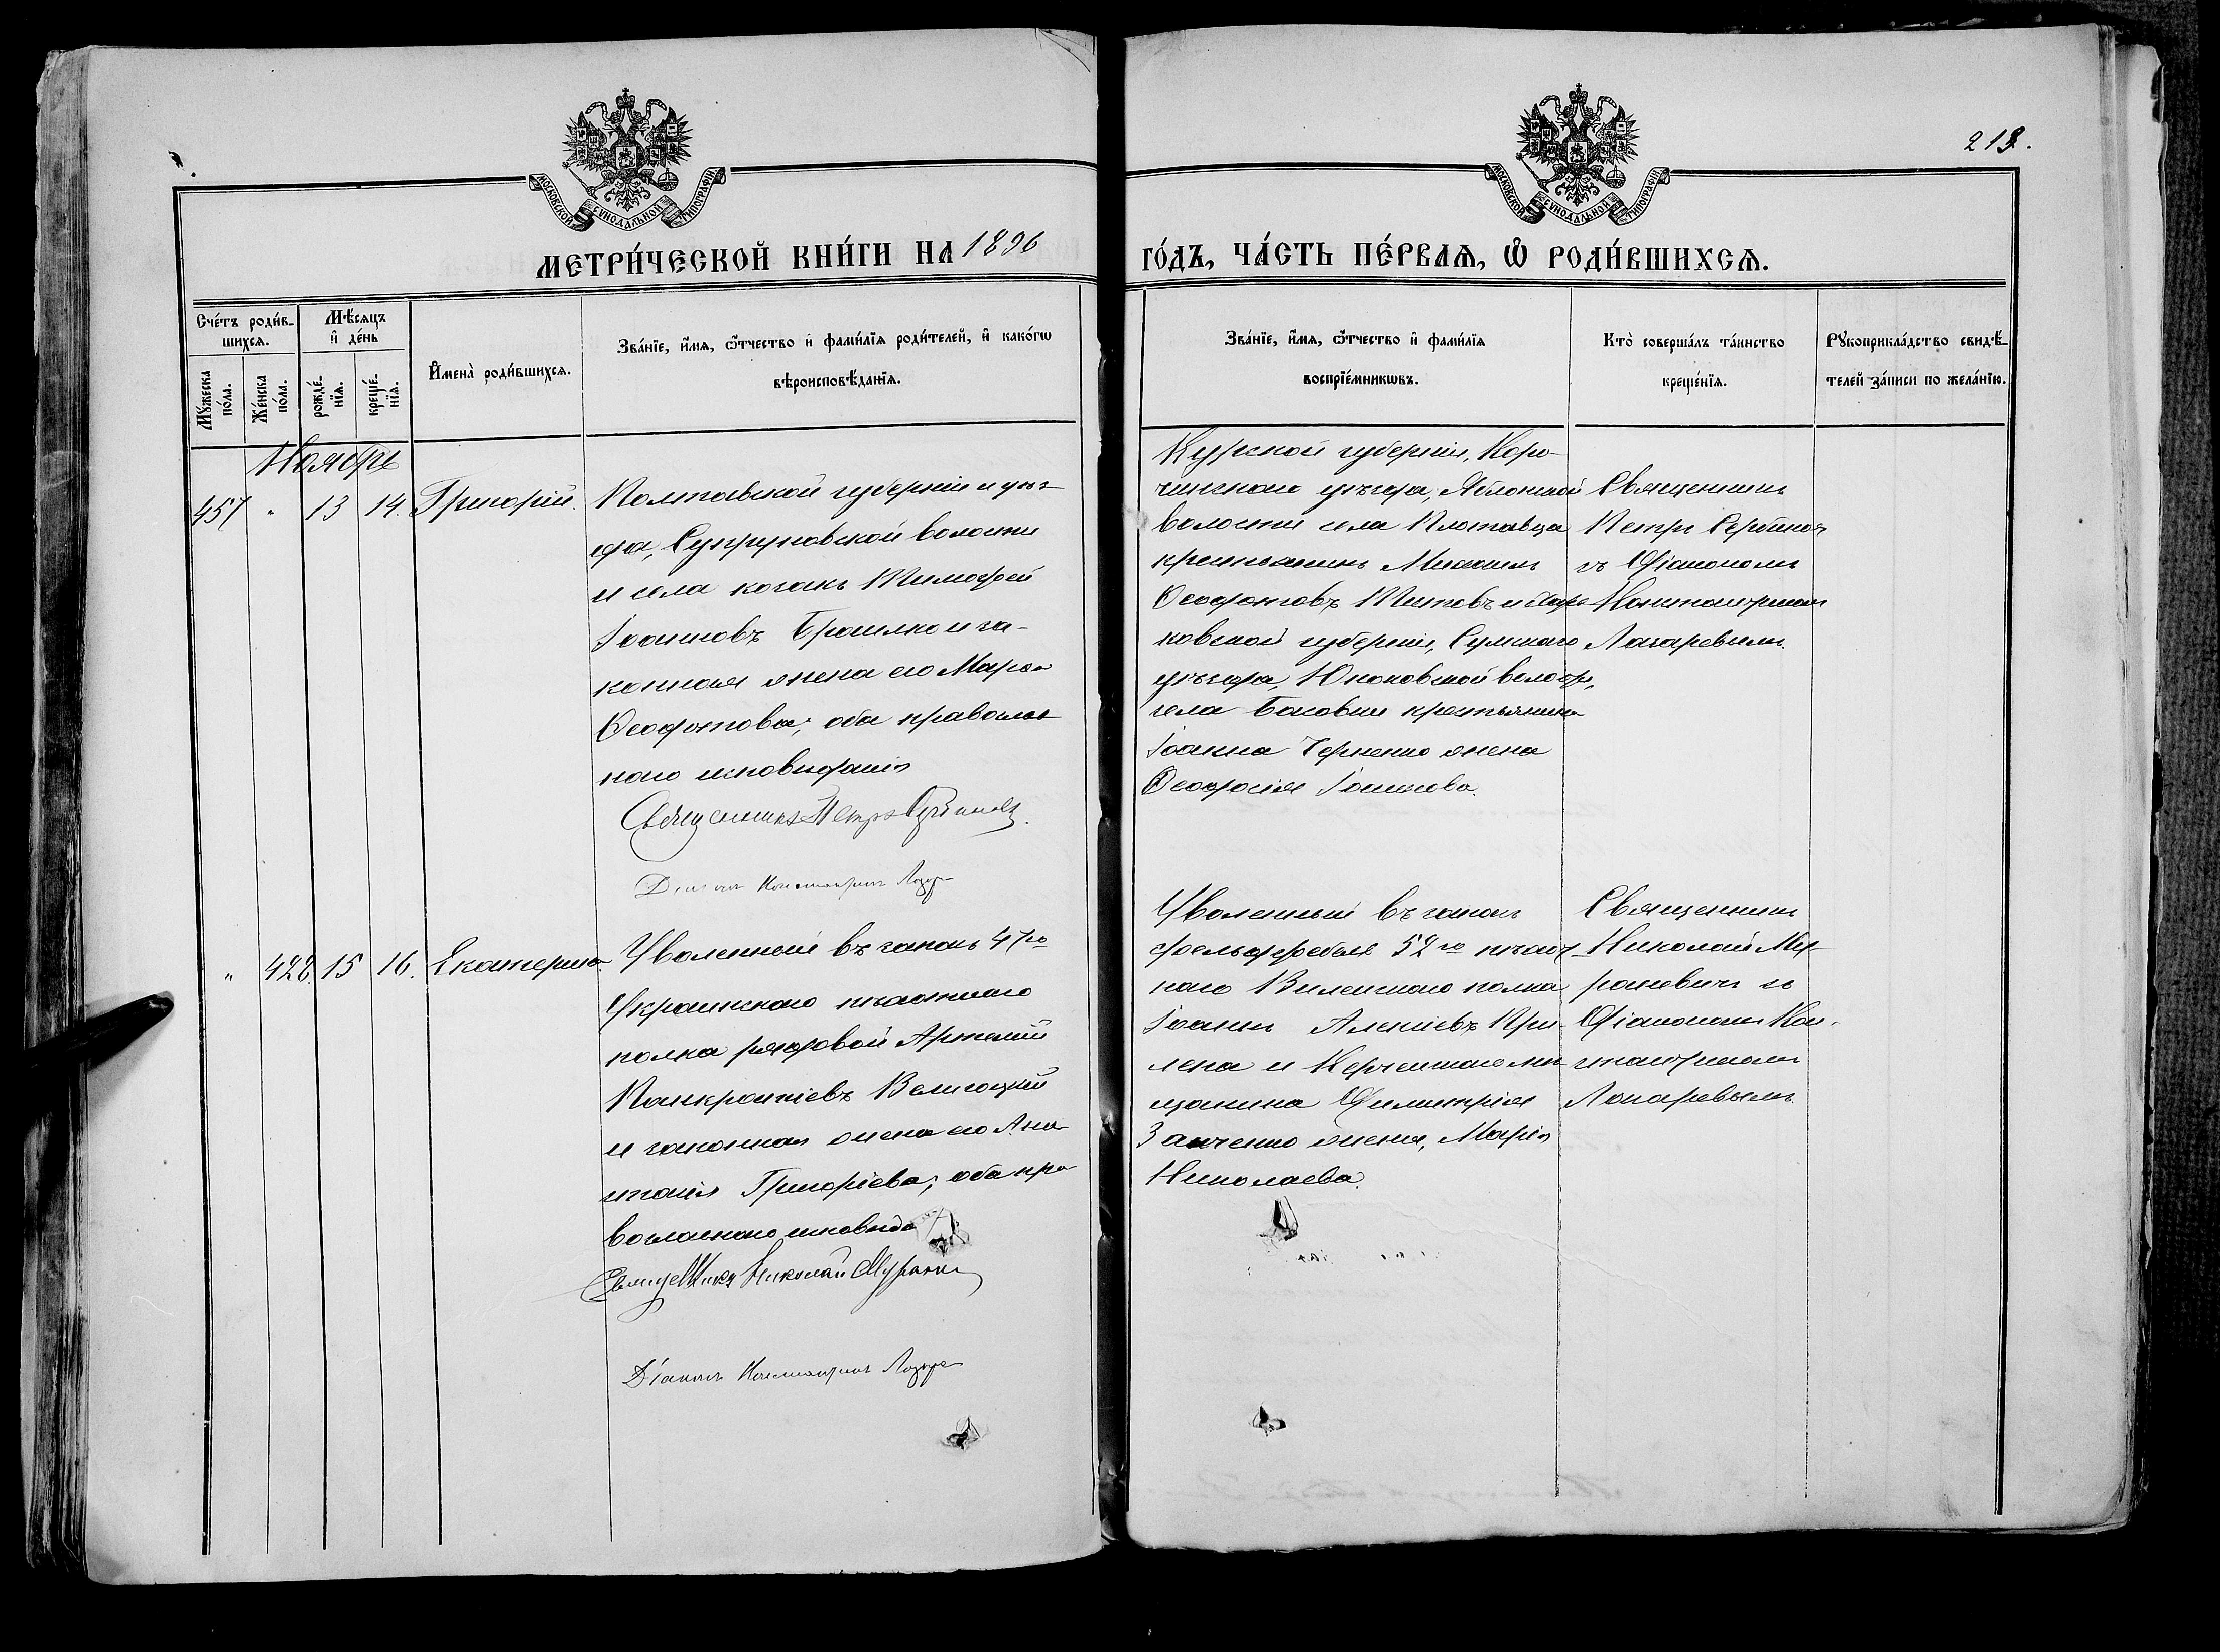 213.
МОСКОВСКОЙ СѴНОДАЛЬНОЙ ТИПОГРАФІИ
МОСКОВСКОЙ СѴНОДАЛЬНОЙ ТИПОГРАФІИ
МЕТРИ́ЧЕСКОЙ КНИ́ГИ НА 1896
ГО́ДЪ, ЧА́СТЬ ПЕ́РВАѦ, Ѽ РОДИ́ВШИХСѦ.
Сче́тъ роди́в-
шихсѧ.
Мꙋ́жеска
по́ла.
Же́нска
по́ла.
Мѣ́сѧцъ
и҆ де́нь
рожде́-
нїѧ.
креще́-
нїѧ.
И҆мена̀ роди́вшихсѧ.
Зва́нїе, и҆́мѧ, ѻ҆́тчество и҆ фами́лїѧ роди́телей, и҆ како́гѡ
вѣроисповѣ́данїѧ.
Зва́нїе, и҆́мѧ, ѻ҆́тчество и҆ фами́лїѧ
воспрїе́мникѡвъ.
Кто̀ соверша́лъ та́инство
креще́нїѧ.
Рꙋкоприкла́дство свидѣ́-
телей за́писи по жела́нїю.
Ноябрь
457 " 13 14. Григорій.
Полтавской губерніи и уѣз-
да, Супруновской волости
и села козакъ Тимофей
Іоанновъ и за-
конная жена его Марѳа
Ѳеофотова; оба православ-
наго исповѣданія
Священникъ Петръ Сербиновъ
Діаконъ Константинъ Лазаре
Курской губерніи, Коро-
чинскаго уѣзда, Яблоновой
волости села Плотавца
крестьянинъ Михаилъ
Ѳеофотовъ Титовъ и Харь-
ковской губерніи, Сумскаго
уѣзда, Юнаковской волости,
села крестьянина
Іоанна Черненко жена
Ѳеодосія Іоаннова.
Священникъ
Петръ Сербиновъ
съ Діакономъ
Константиномъ
Лазаревымъ.
" 428. 15 16. Екатерина.
Уволенный въ запасъ 47го
Украинскаго пѣхотнаго
полка рядовой Артемій
Панкратіевъ
и законная жена его Ана-
стасія Григоріева; оба пра
вославнаго исповѣда
Священникъ Николай Муранев
Діаконъ Константинъ Лазаре
Уволенный въ запасъ
фельдфебель 52го пѣхот-
наго Виленскаго полка
Іоаннъ Алексіевъ При-
лепа и Керченскаго мѣ-
щанина Димитрія
Занченко жена, Марія
Николаева.
Священникъ
Николай Му-
раневичъ съ
Діакономъ Кон-
стантиномъ
Лазаревымъ.